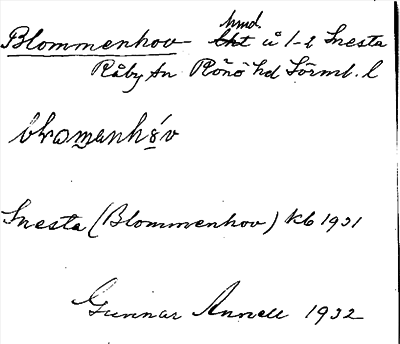 Blommenhov hmd. å 1-2 Snesta
Råby sn Rönö hd Sörml. l
Snesta (Blommenhov) kb 1931
Gunnar Annell 1932